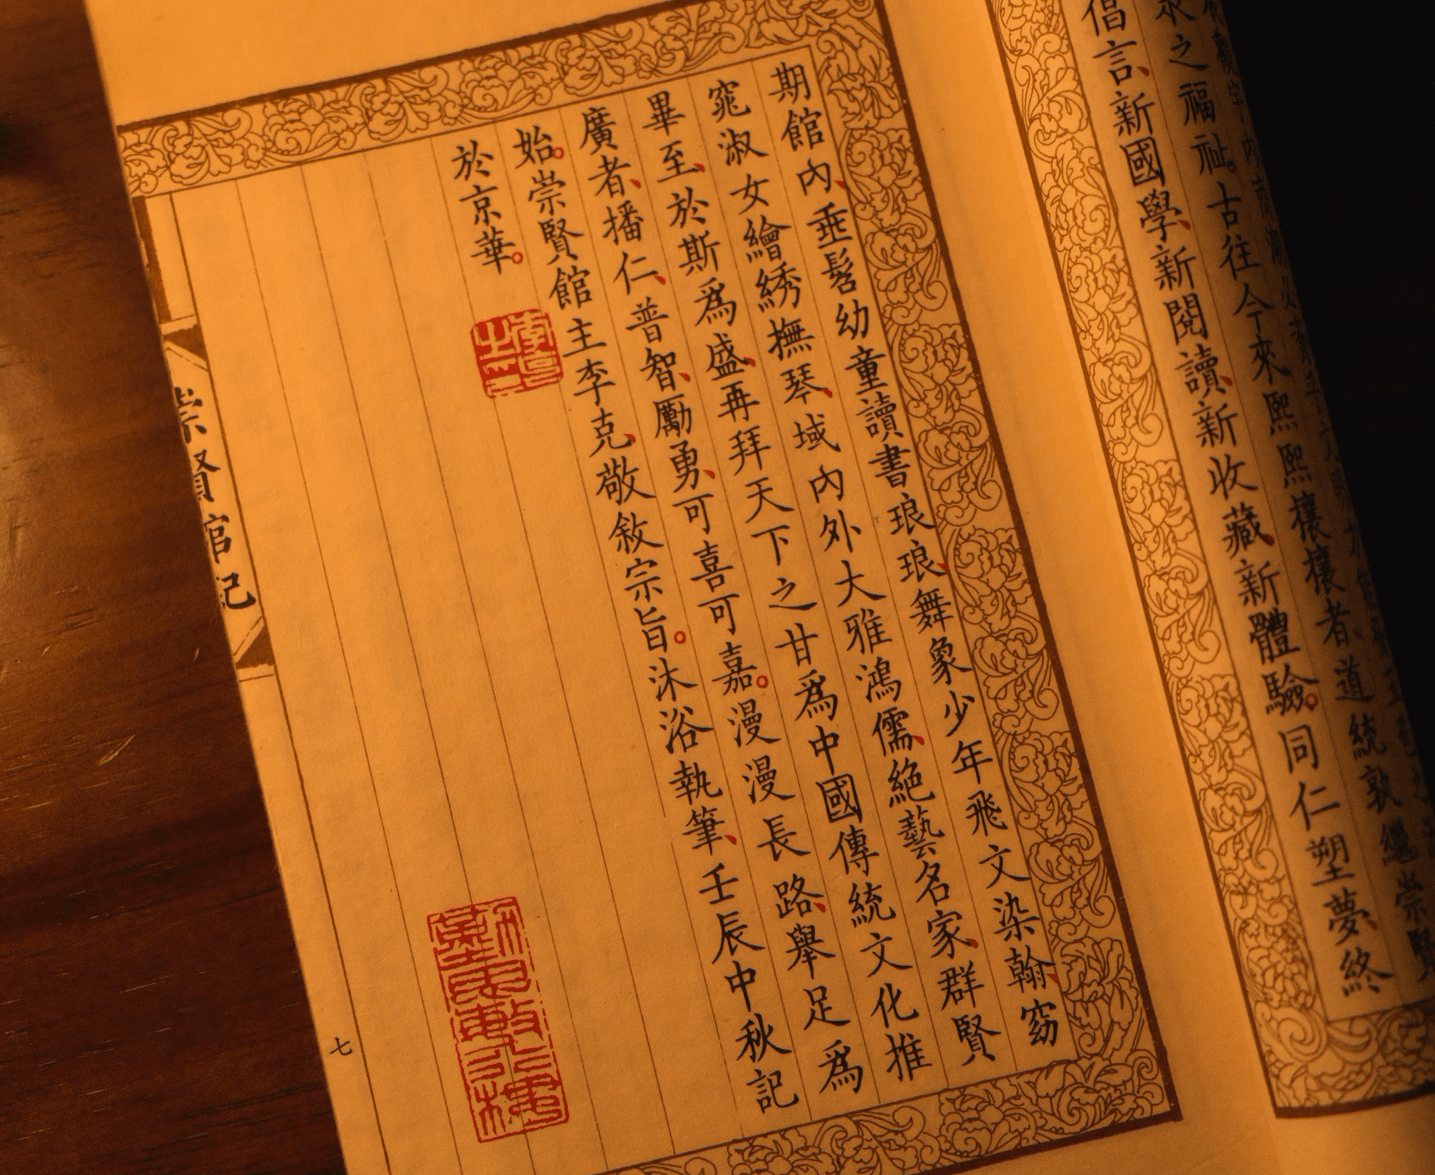 永之福祉。古往今來熙熙攘攘者、道統敦繼崇賢
倡言、新國學、新閱讀、新收藏、新體驗。同仁塑夢、終
期館內、垂髫幼童讀書琅琅、舞象少年飛文染翰、窈
窕淑女繪綉撫琴、域內外大雅鴻儒、絕藝名家、群賢
畢至、於斯爲盛、再拜天下之甘爲中國傳統文化推
廣者、播仁、普智、勵勇、可喜可嘉。漫漫長路、舉足爲
始。崇賢館主李克、敬敘宗旨。沐浴執筆、壬辰中秋記
於京華。
崇賢館記
七